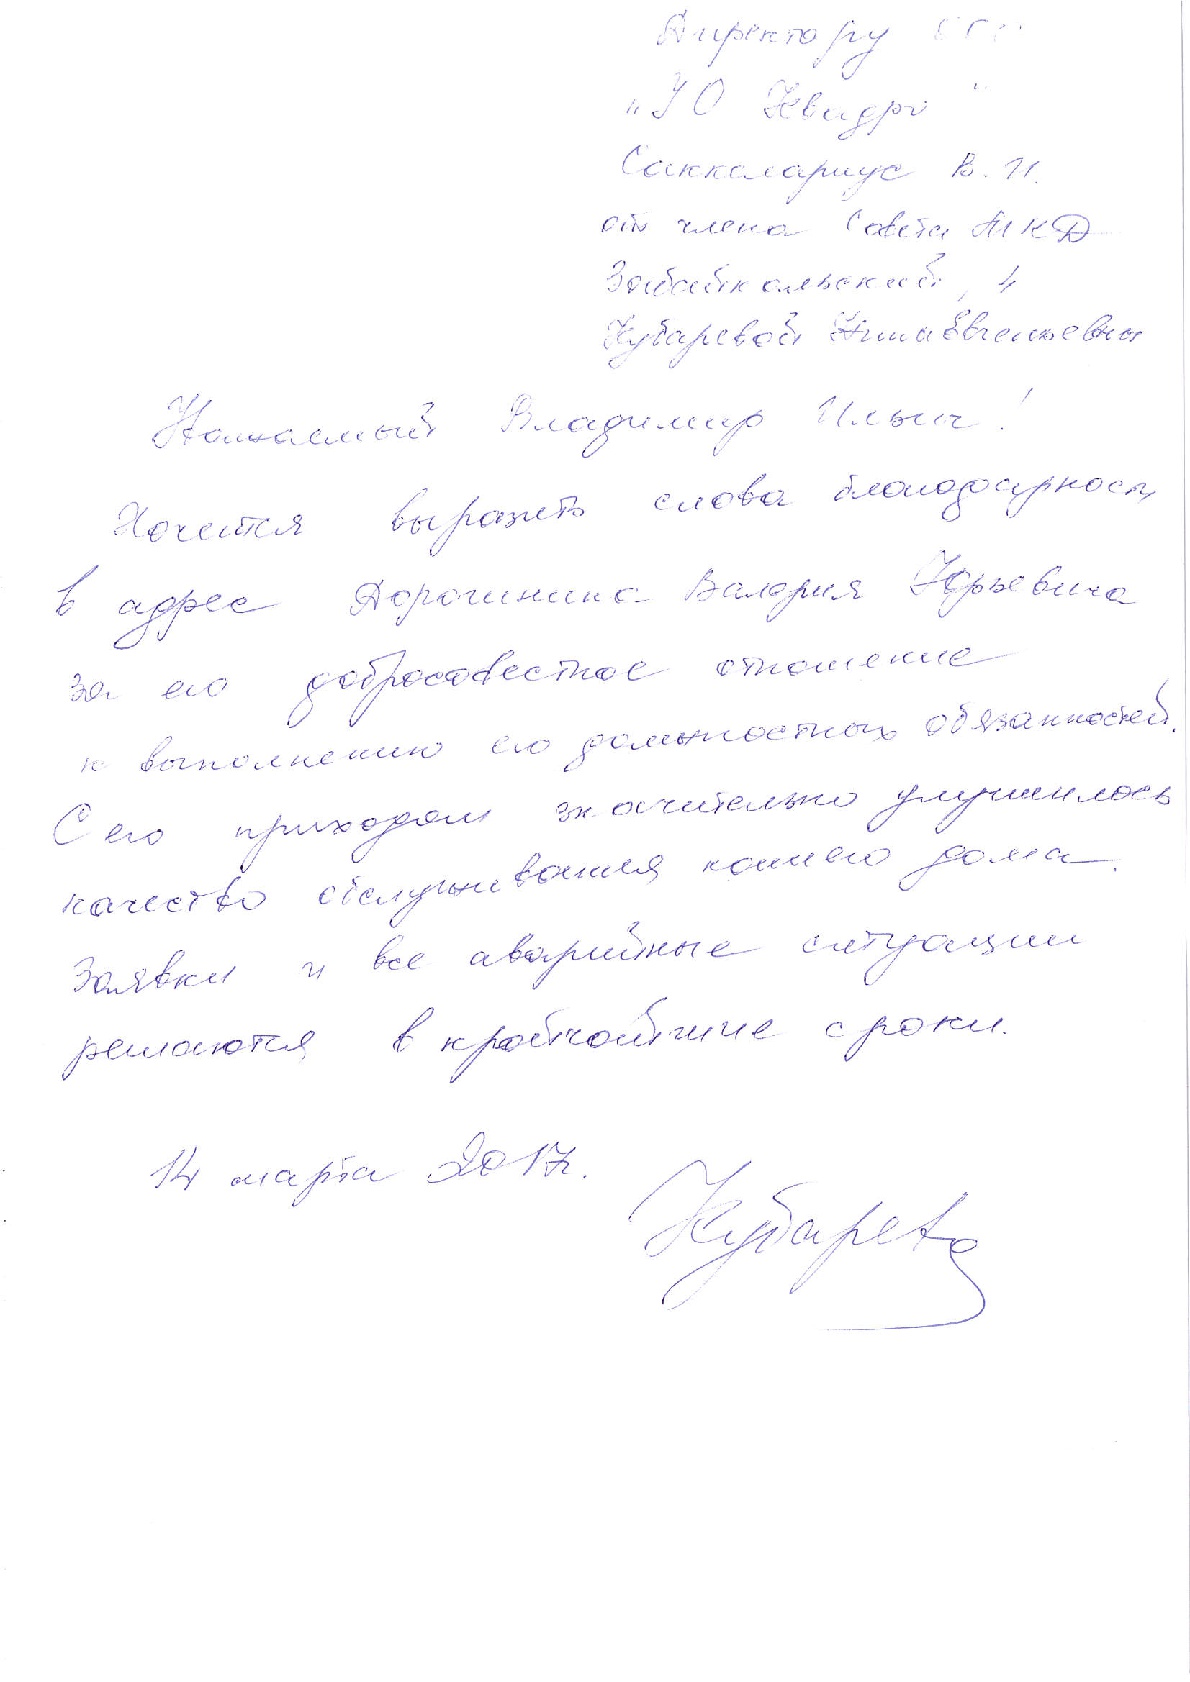 Директору ООО
"УО Квадро"
Саккалариус В. И.
от члена Совета МКД
Забайкальский, 4
Кубаревой Нины Евгеньевны
Уважаемый Владимир Ильич!
Хочется выразить слова благодарности
в адрес Дорогинина Валерия Юрьевича
за его добросовестное отношение
к выполнению его должностных обязанностей.
С его приходом значительно улучшилось
качество обслуживания нашего дома.
Заявки и все аварийные ситуации
решаются в кратчайшие сроки.
14 марта 2017г.
Кубарева